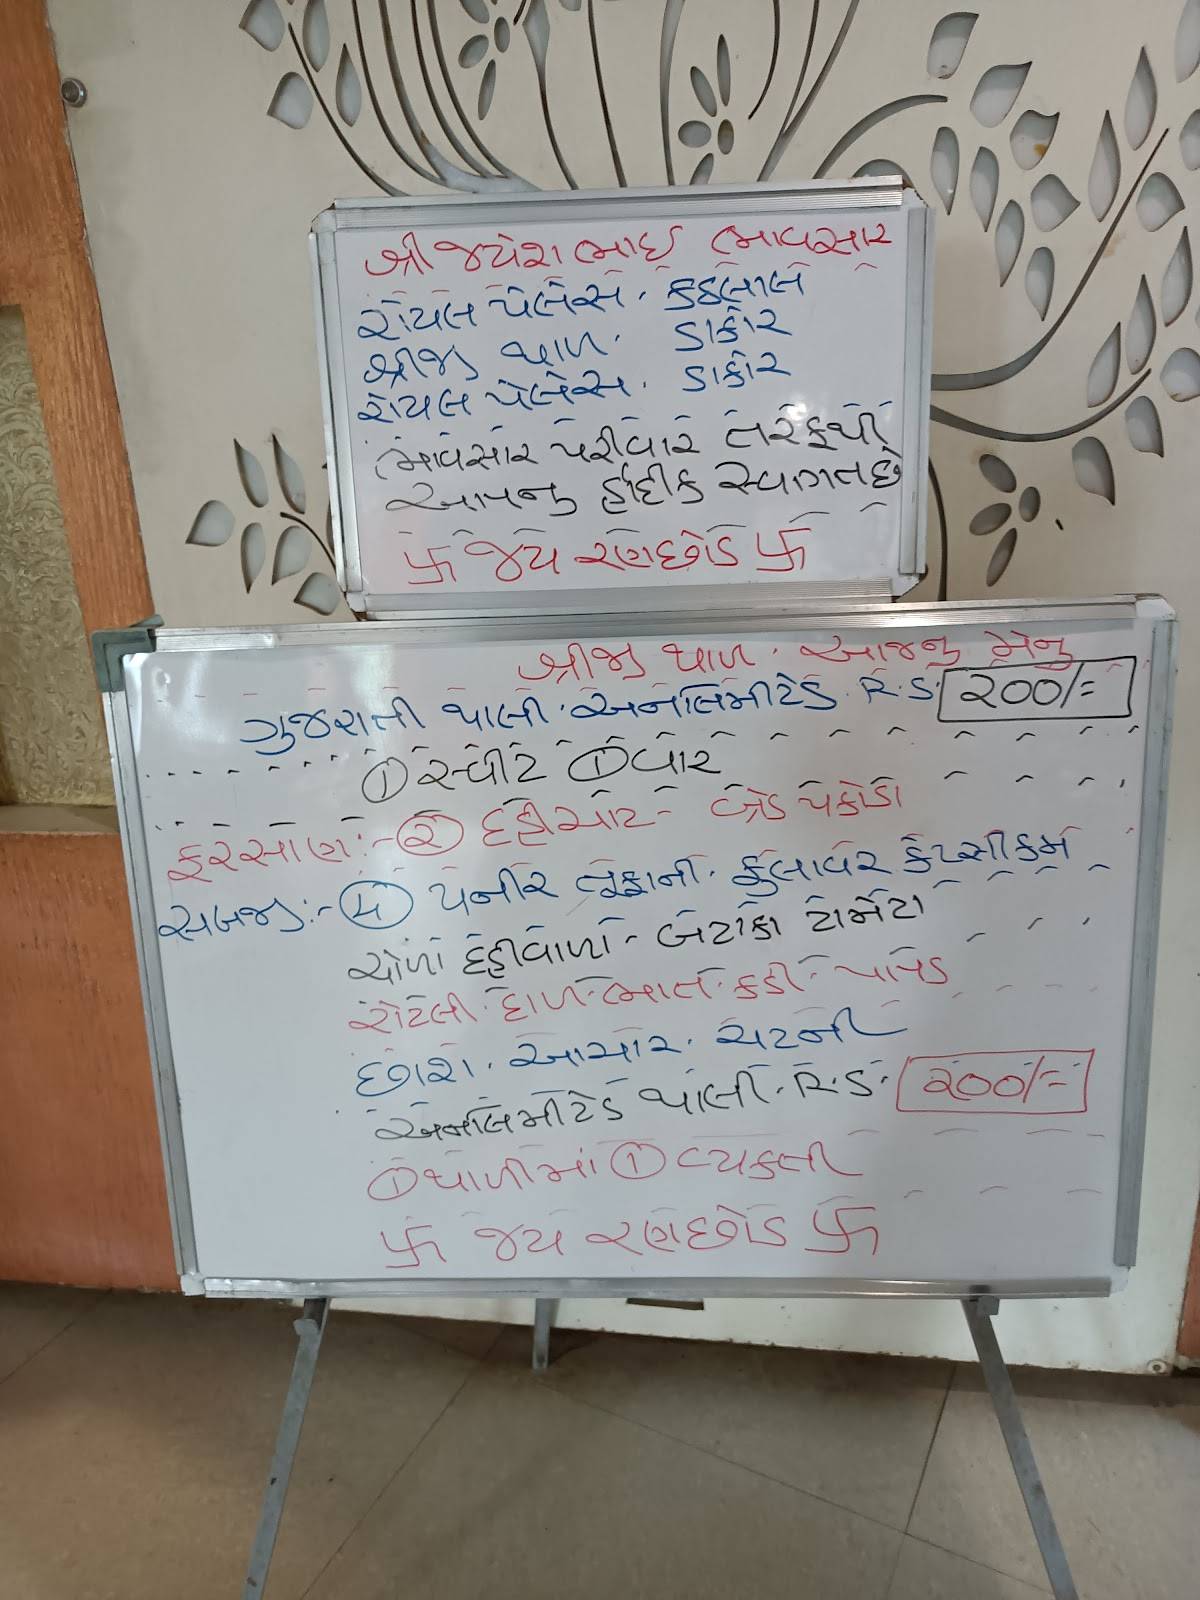 શ્રી જયેશભાઈ ભાવસાર
રોયલ પેલેસ. કઠલાલ
શ્રીજી થાળ. ડાકોર
રોયલ પેલેસ. ડાકોર
ભાવસાર પરીવાર તરફથી
આપનુ હાર્દીક સ્વાગત છે
卐 જય રણછોડ 卐
શ્રીજી થાળ. આજનુ મેનુ
ગુજરાતી થાલી. અનલિમીટેડ. R.S. 200/=
① સ્વીટ ① વાર
ફરસાણ:- ② દહીચાટ - બ્રેડ પકોડા
સબજી:- ④ પનીર તૂફાની. ફુલાવર કેપ્સીકમ
ચોળા દહીવાળા - બટાકા ટામેટા
રોટલી. દાળ-ભાત. કઢી - પાપડ
છાશ. આચાર. ચટની
અનલિમીટેડ થાલી. R.S. 200/=
① થાળીમાં ① વ્યકતી
卐 જય રણછોડ 卐